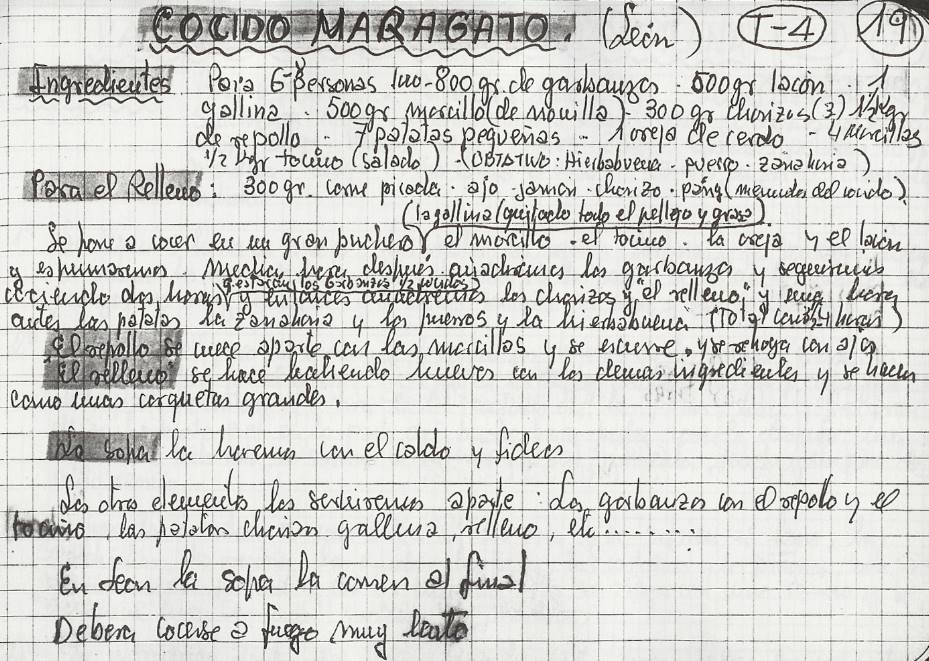 COCIDO MARAGATO. (León) T-4 19
Ingredientes Para 6 personas 800 gr. de garbanzos - 500 gr lacón - 1
gallina - 500 gr morcillo (de novilla) - 300 gr chorizos (3) 1/2 kgr
de repollo - 7 patatas pequeñas - 1 oreja de cerdo - 4 morcillas
1/2 kgr tocino (salado) - (OBTATIVO: Hierbabuena - puerro - zanahoria)
Para el Relleno: 300 gr. carne picada - ajo - jamón - chorizo - pan (menudos del cocido).
(la gallina (quitado todo el pellejo y grasa)
Se pone a cocer en un gran puchero el morcillo - el tocino - la oreja y el lacón
y espumaremos. Media hora después añadiremos los garbanzos y seguiremos
y estarán los garbanzos 1/2 cocidos
cociendo dos horas y entonces añadiremos los chorizos y "el relleno" y una hora
antes las patatas la zanahoria y los puerros y la hierbabuena (Total 4 horas)
El repollo se cuece aparte con las morcillas y se escurre, y se rehoga con ajos
"El relleno" se hace batiendo huevos con los demas ingredientes y se hacen
como unas corquetas grandes.
La sopa la haremos con el caldo y fideos
Los otros elementos los serviremos aparte: Los garbanzos con el repollo y el
tocino, las patatas chorizos gallina, relleno, etc.........
En Leon la sopa la comen al final
Debera cocerse a fuego muy lento